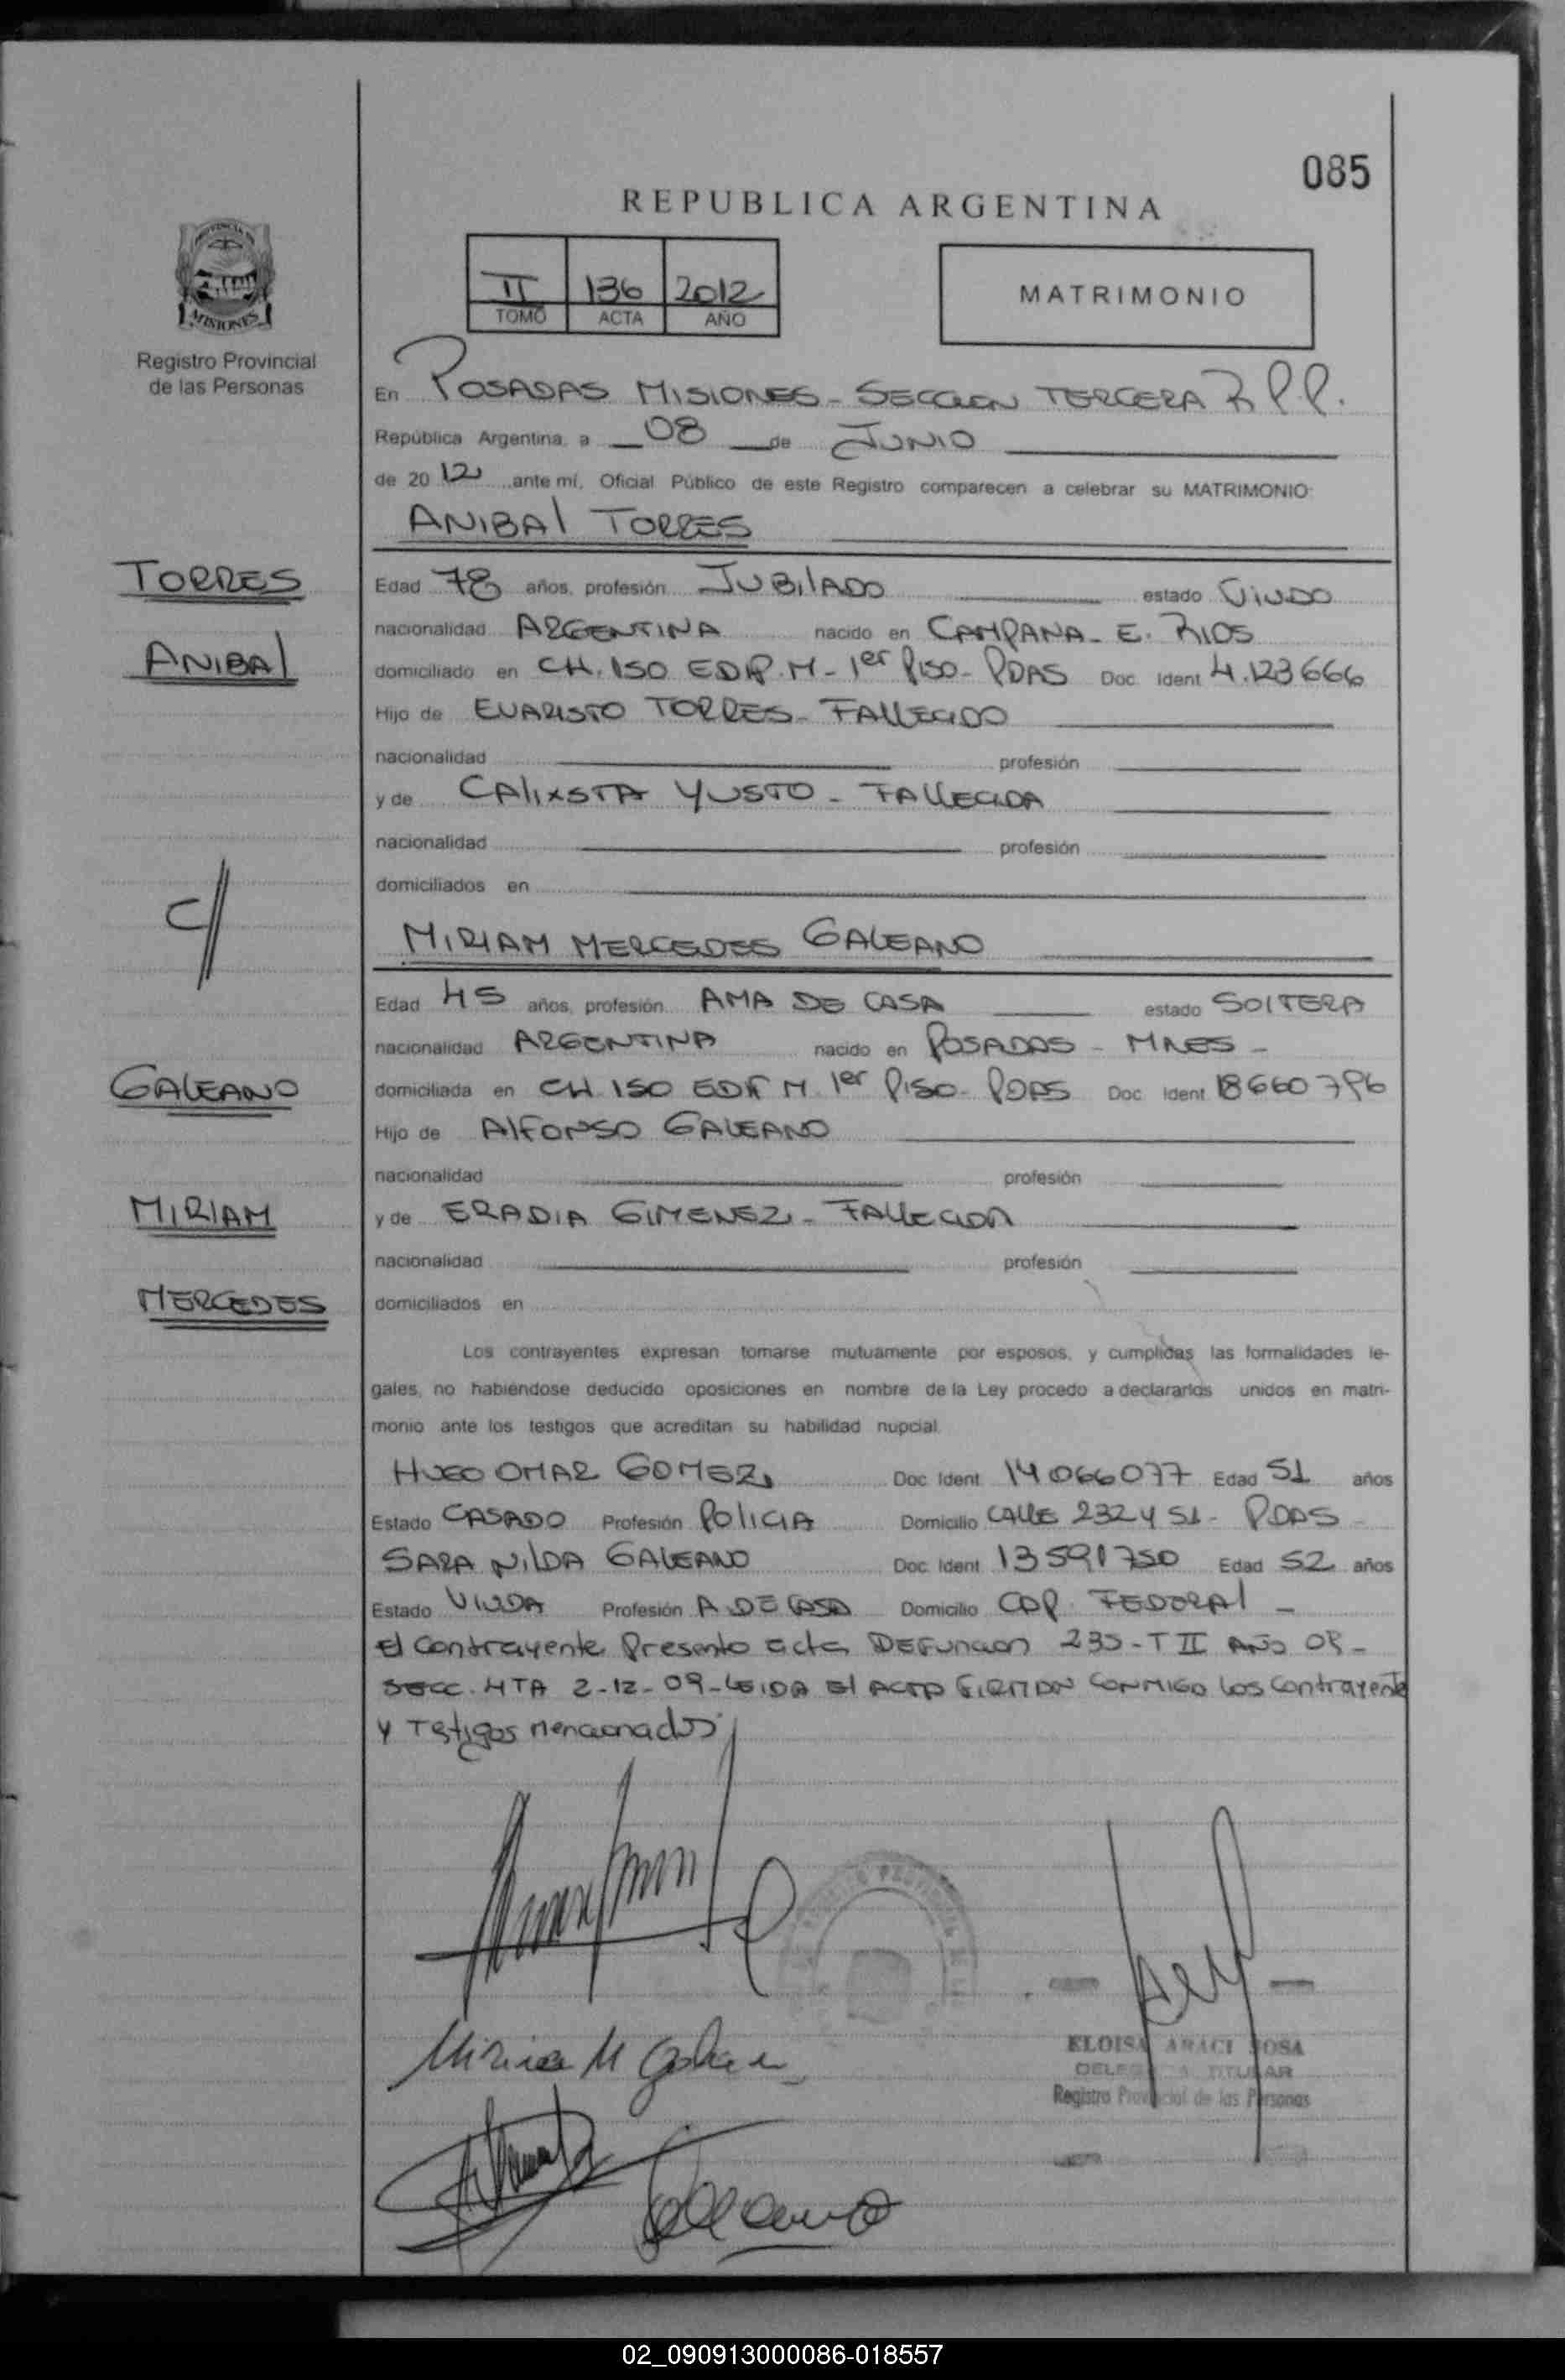 085
REPUBLICA ARGENTINA
II 136 2012
TOMO ACTA AÑO
MATRIMONIO
MISIONES
Registro Provincial
de las Personas
En POSADAS MISIONES - SECCION TERCERA R.P.P.
República Argentina, a 08 de JUNIO
de 2012 ante mí, Oficial Público de este Registro comparecen a celebrar su MATRIMONIO:
ANIBAL TORRES
TORRES
ANIBAL
Edad 78 años, profesión JUBILADO estado VIUDO
nacionalidad ARGENTINA nacido en CAMPANA - E. RIOS
domiciliado en CH. 150 EDIF. M - 1er PISO - PDAS Doc. Ident 4.123666
Hijo de EVARISTO TORRES - FALLECIDO
nacionalidad profesión
y de CALIXSTA YUSTO - FALLECIDA
nacionalidad profesión
domiciliados en
C//
MIRIAM MERCEDES GALEANO
Edad 45 años, profesión AMA DE CASA estado SOLTERA
nacionalidad ARGENTINA nacido en POSADAS - MNES -
GALEANO
domiciliada en CH 150 EDIF M 1er PISO - PDAS Doc. Ident 18660796
Hijo de ALFONSO GALEANO
nacionalidad profesión
MIRIAM
y de ERADIA GIMENEZ - FALLECIDA
nacionalidad profesión
MERCEDES
domiciliados en
Los contrayentes expresan tomarse mutuamente por esposos, y cumplidas las formalidades le-
gales, no habiéndose deducido oposiciones en nombre de la Ley procedo a declararlos unidos en matri-
monio ante los testigos que acreditan su habilidad nupcial.
HUGO OMAR GOMEZ Doc. Ident 14066077 Edad 51 años
Estado CASADO Profesión POLICIA Domicilio CALLE 232 y 51 - PDAS -
SARA NILDA GALEANO Doc. Ident 13591750 Edad 52 años
Estado VIUDA Profesión A DE CASA Domicilio CAP. FEDERAL -
El Contrayente Presento acta DEFuncion 235 - T II AÑO 09 -
SECC. 4TA 2-12-09 - LEIDA El ACTA FIRMAN CONMIGO los contrayente
y Testigos mencionados
Miriam M Galeano
ELOISA ARACI SOSA
DELEGADA TITULAR
Registro Provincial de las Personas
Galeano
02_090913000086-018557